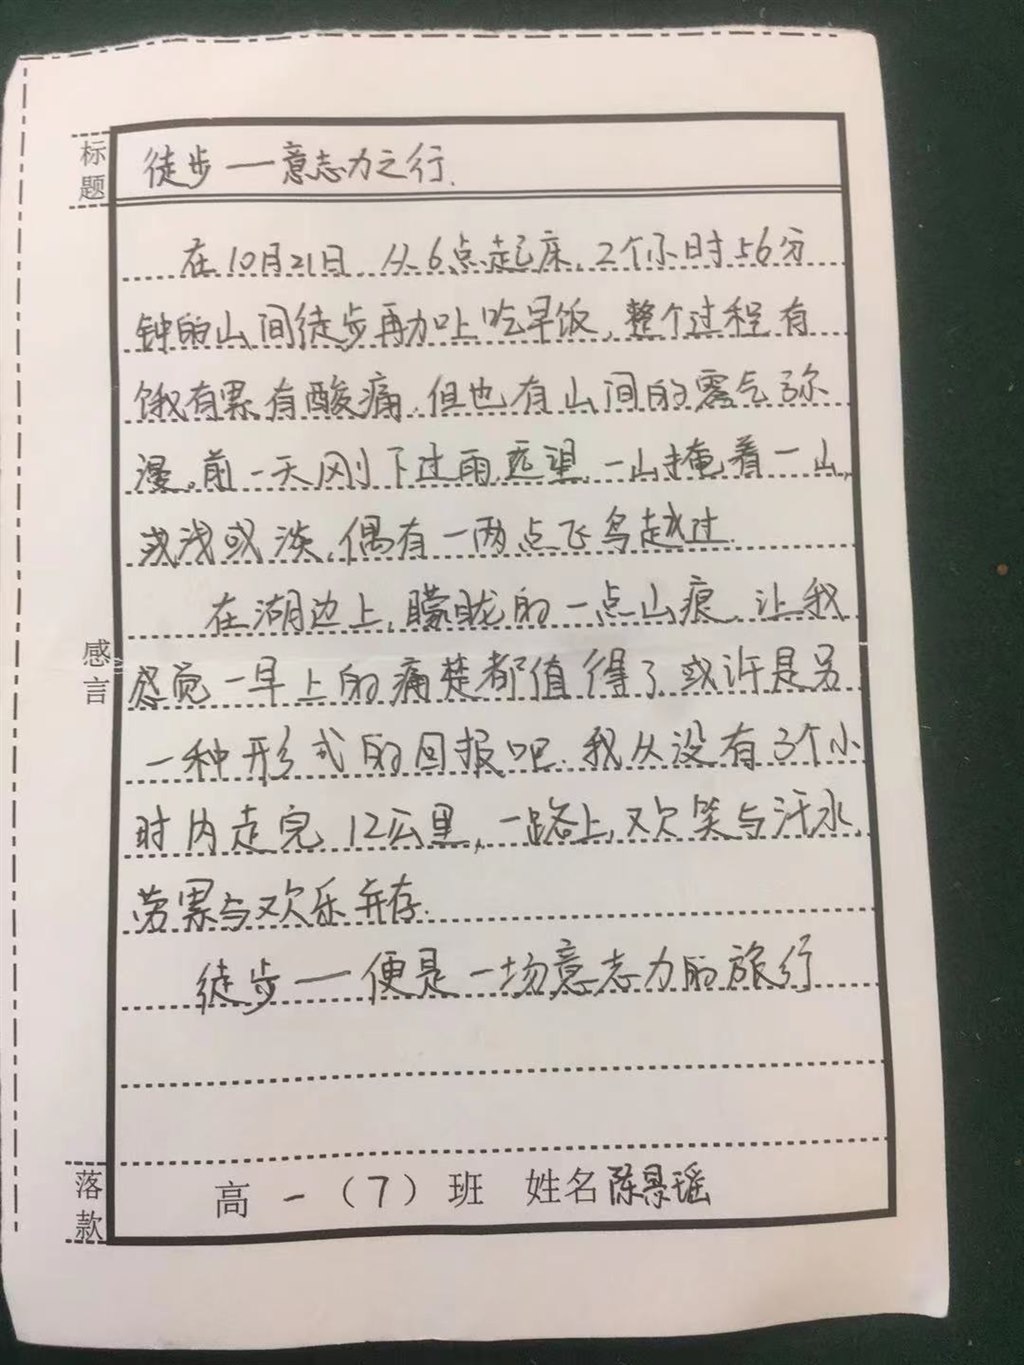 标题
徒步一意志力之行.
在10月21日,从6点起床,2个小时56分
钟的山间徒步再加上吃早饭,整个过程有
饿有累有酸痛.但也有山间的雾气弥
漫,前一天刚下过雨,远望,一山掩着一山,
或浅或淡,偶有一两点飞鸟越过.
在湖边上,朦胧的一点山痕,让我
感言
感觉一早上的痛楚都值得了或许是另
一种形式的回报吧.我从没有3个小
时内走完12公里,一路上,欢笑与汗水,
劳累与欢乐并存.
徒步一便是一场意志力的旅行
落款
高一(7)班 姓名陈景瑶